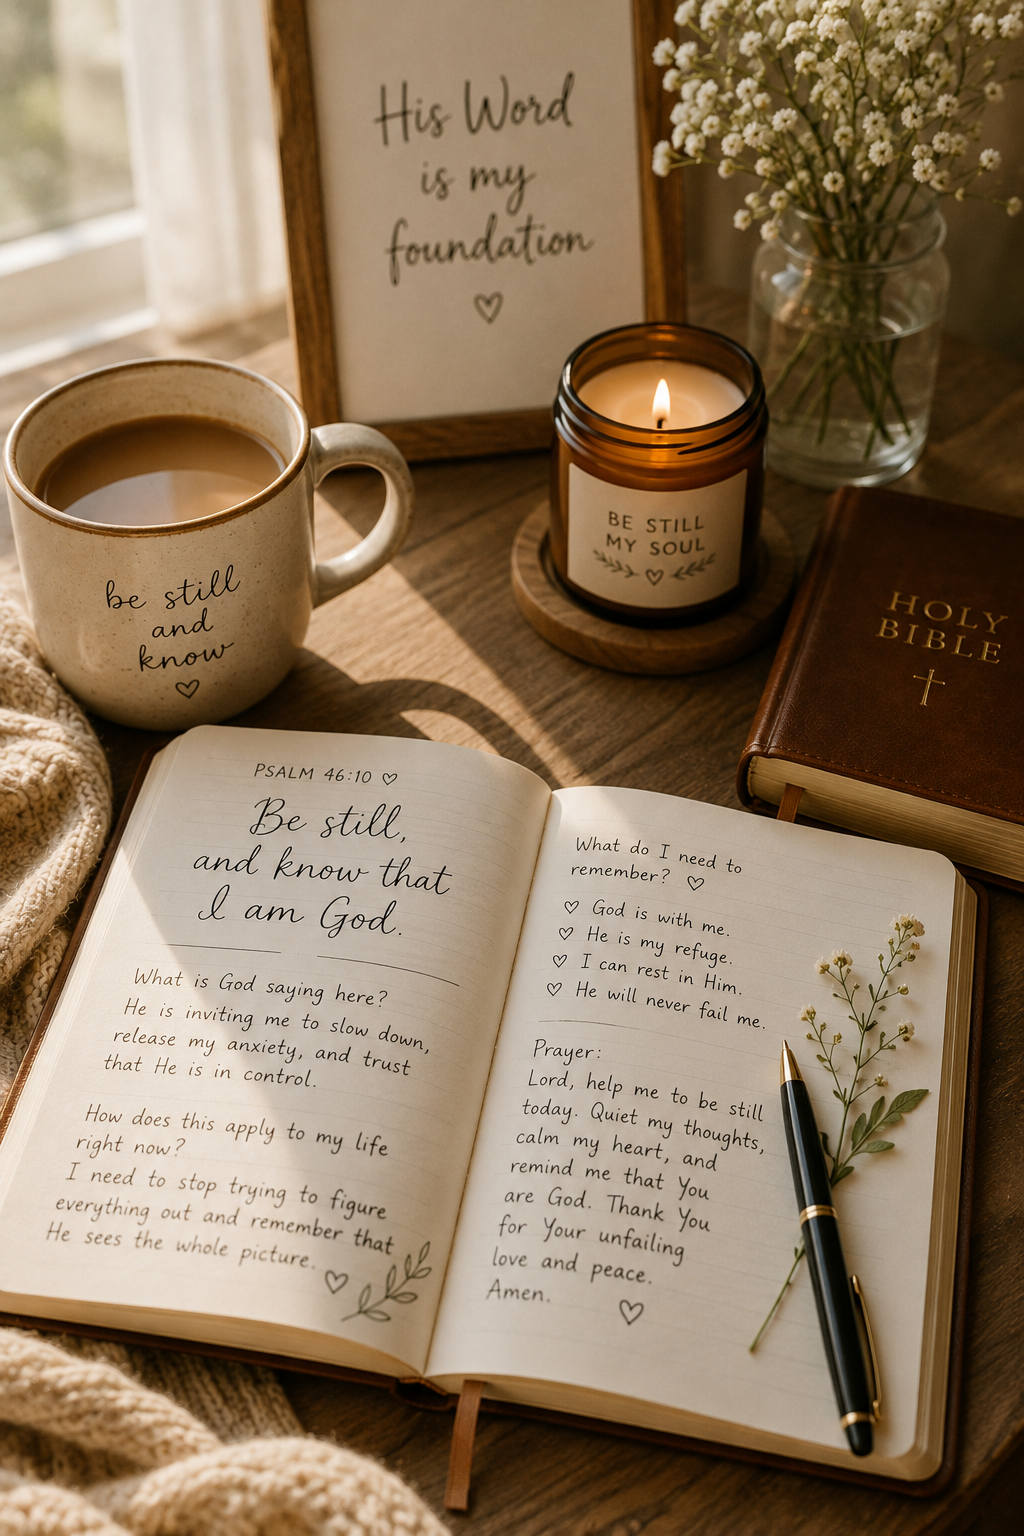 His Word
is my
foundation
be still
and
know
BE STILL
MY SOUL
HOLY
BIBLE
PSALM 46:10
Be still,
and know that
I am God.
What is God saying here?
He is inviting me to slow down,
release my anxiety, and trust
that He is in control.
How does this apply to my life
right now?
I need to stop trying to figure
everything out and remember that
He sees the whole picture.
What do I need to
remember?
God is with me.
He is my refuge.
I can rest in Him.
He will never fail me.
Prayer:
Lord, help me to be still
today. Quiet my thoughts,
calm my heart, and
remind me that You
are God. Thank You
for Your unfailing
love and peace.
Amen.